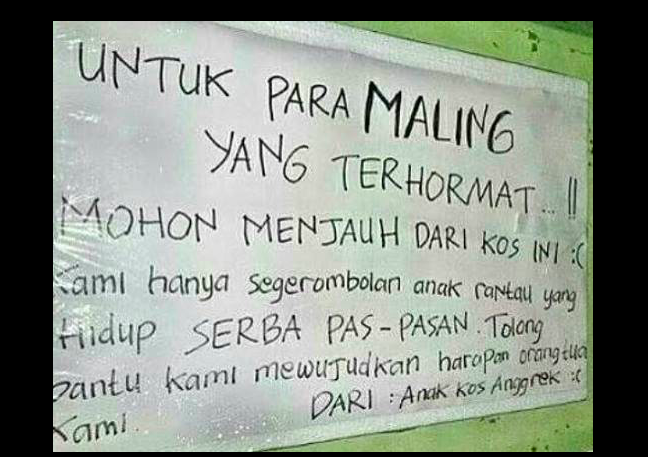 UNTUK PARA MALING
YANG TERHORMAT...!!
MOHON MENJAUH DARI KOS INI :(
Kami hanya segerombolan anak rantau yang
Hidup SERBA PAS-PASAN. Tolong
bantu kami mewujudkan harapan orangtua
Kami.
DARI : Anak Kos Anggrek :(